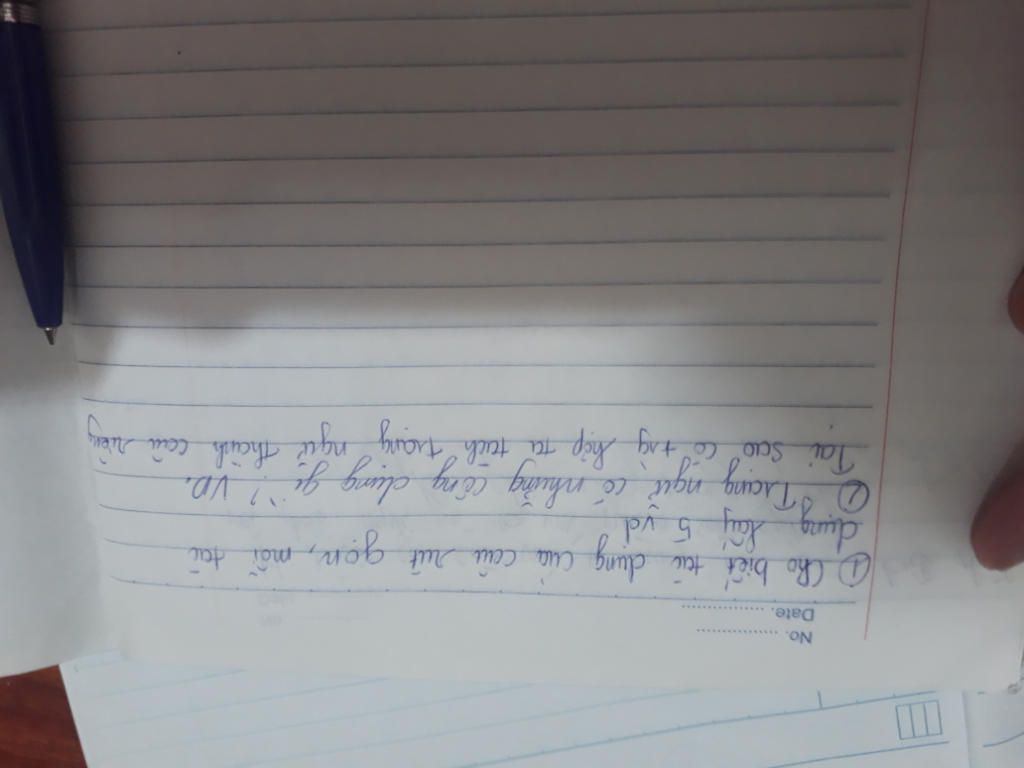 No. ..................
Date. ..................
① Cho biết tác dụng của câu rút gọn, mỗi tác
dụng lấy 5 vd
② Trạng ngữ có những công dụng gì? VD.
Tại sao có trg hợp ta tách trạng ngữ thành câu riêng